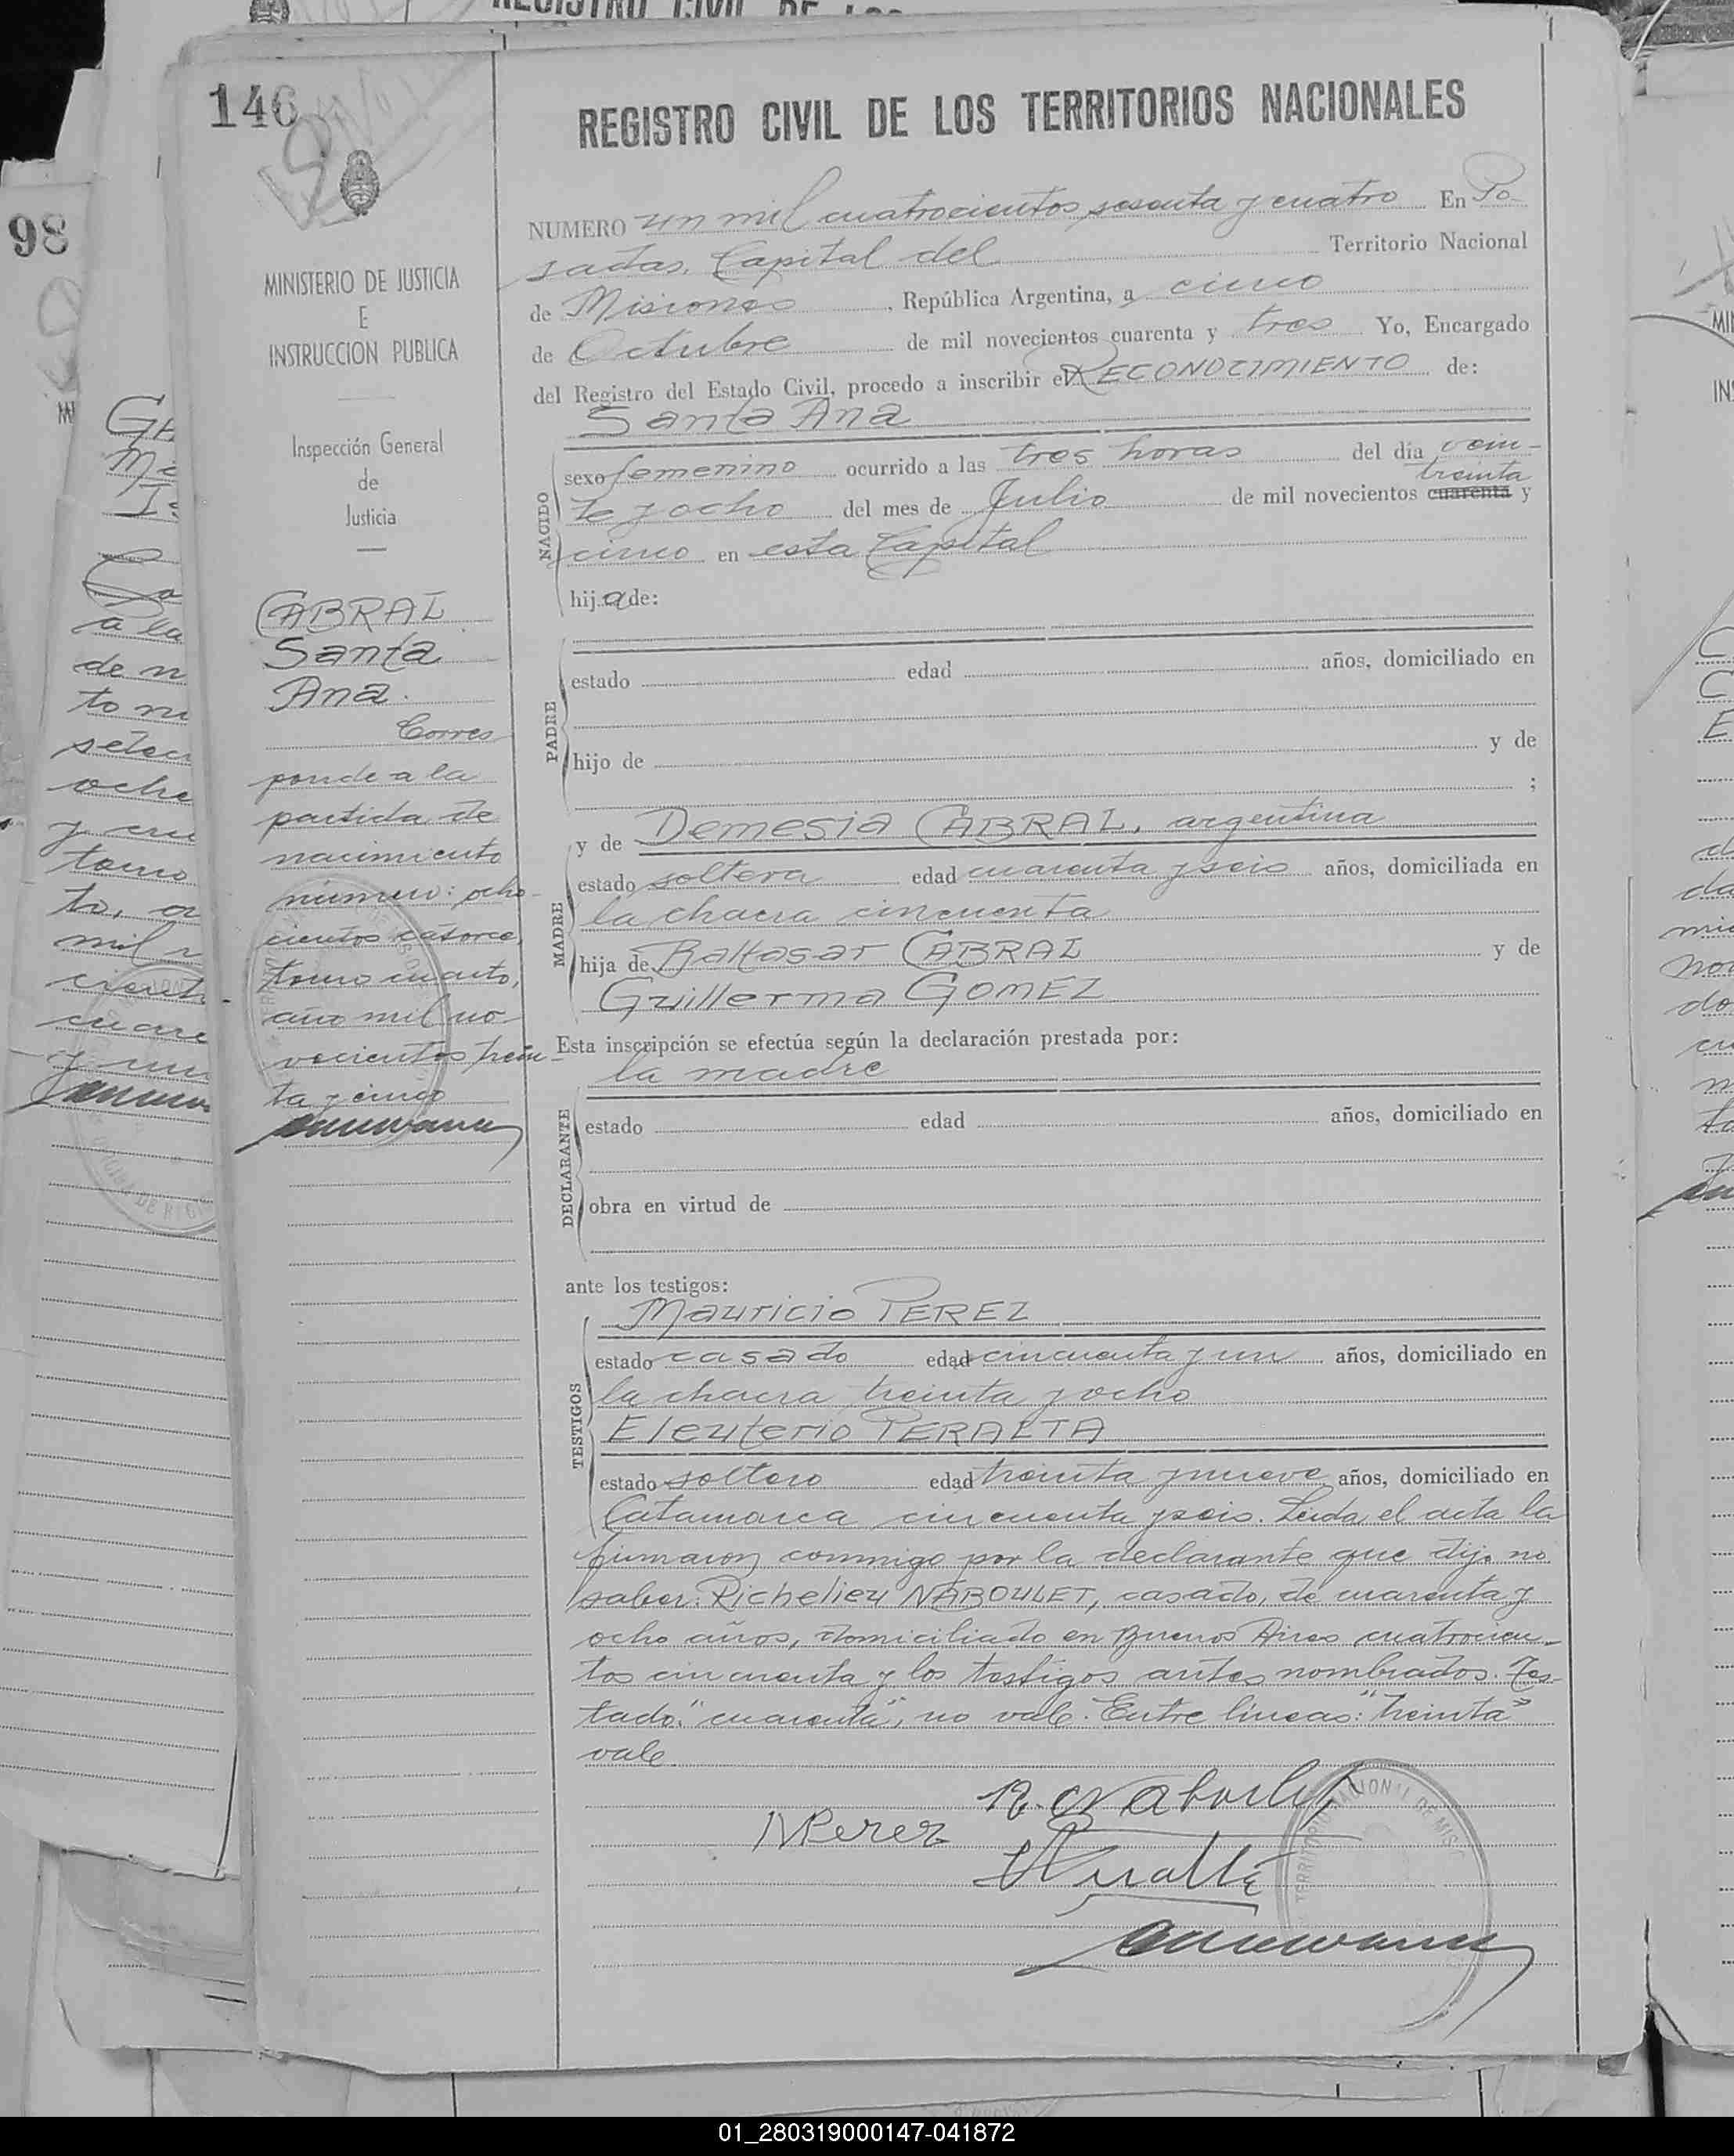 146
REGISTRO CIVIL DE LOS TERRITORIOS NACIONALES
MINISTERIO DE JUSTICIA
E
INSTRUCCION PUBLICA
Inspección General
de
Justicia
CABRAL
Santa
Ana.
Corres
ponde a la
partida de
nacimiento
número: ocho-
cientos catorce,
tomo cuarto,
año mil no
vecientos trein-
ta y cinco
NUMERO un mil cuatrocientos sesenta y cuatro En Po-
sadas, Capital del Territorio Nacional
de Misiones, República Argentina, a cinco
de Octubre de mil novecientos cuarenta y tres Yo, Encargado
del Registro del Estado Civil, procedo a inscribir el RECONOCIMIENTO de:
Santa Ana
NACIDO
sexo femenino ocurrido a las tres horas del día vein-
treinta
te y ocho del mes de Julio de mil novecientos cuarenta y
cinco en esta Capital
hija de:
PADRE
estado edad años, domiciliado en
hijo de y de
;
y de Demesia CABRAL, argentina
MADRE
estado soltera edad cuarenta y seis años, domiciliada en
la chacra cincuenta
hija de Baltasar CABRAL y de
Guillerma GOMEZ
Esta inscripción se efectúa según la declaración prestada por:
la madre
DECLARANTE
estado edad años, domiciliado en
obra en virtud de
ante los testigos:
Mauricio PEREZ
TESTIGOS
estado casado edad cincuenta y un años, domiciliado en
la chacra treinta y ocho
Eleuterio PERALTA
estado soltero edad treinta y nueve años, domiciliado en
Catamarca cincuenta y seis. Leida el acta la
firmaron conmigo por la declarante que dijo no
saber: Richelieu NABOULET, casado, de cuarenta y
ocho años, domiciliado en Buenos Aires cuatrocien-
tos cincuenta y los testigos antes nombrados. Tes-
tado: "cuarenta", no vale. Entre líneas: "treinta"
vale
R. Naboulet
M Perez
98
01_280319000147-041872